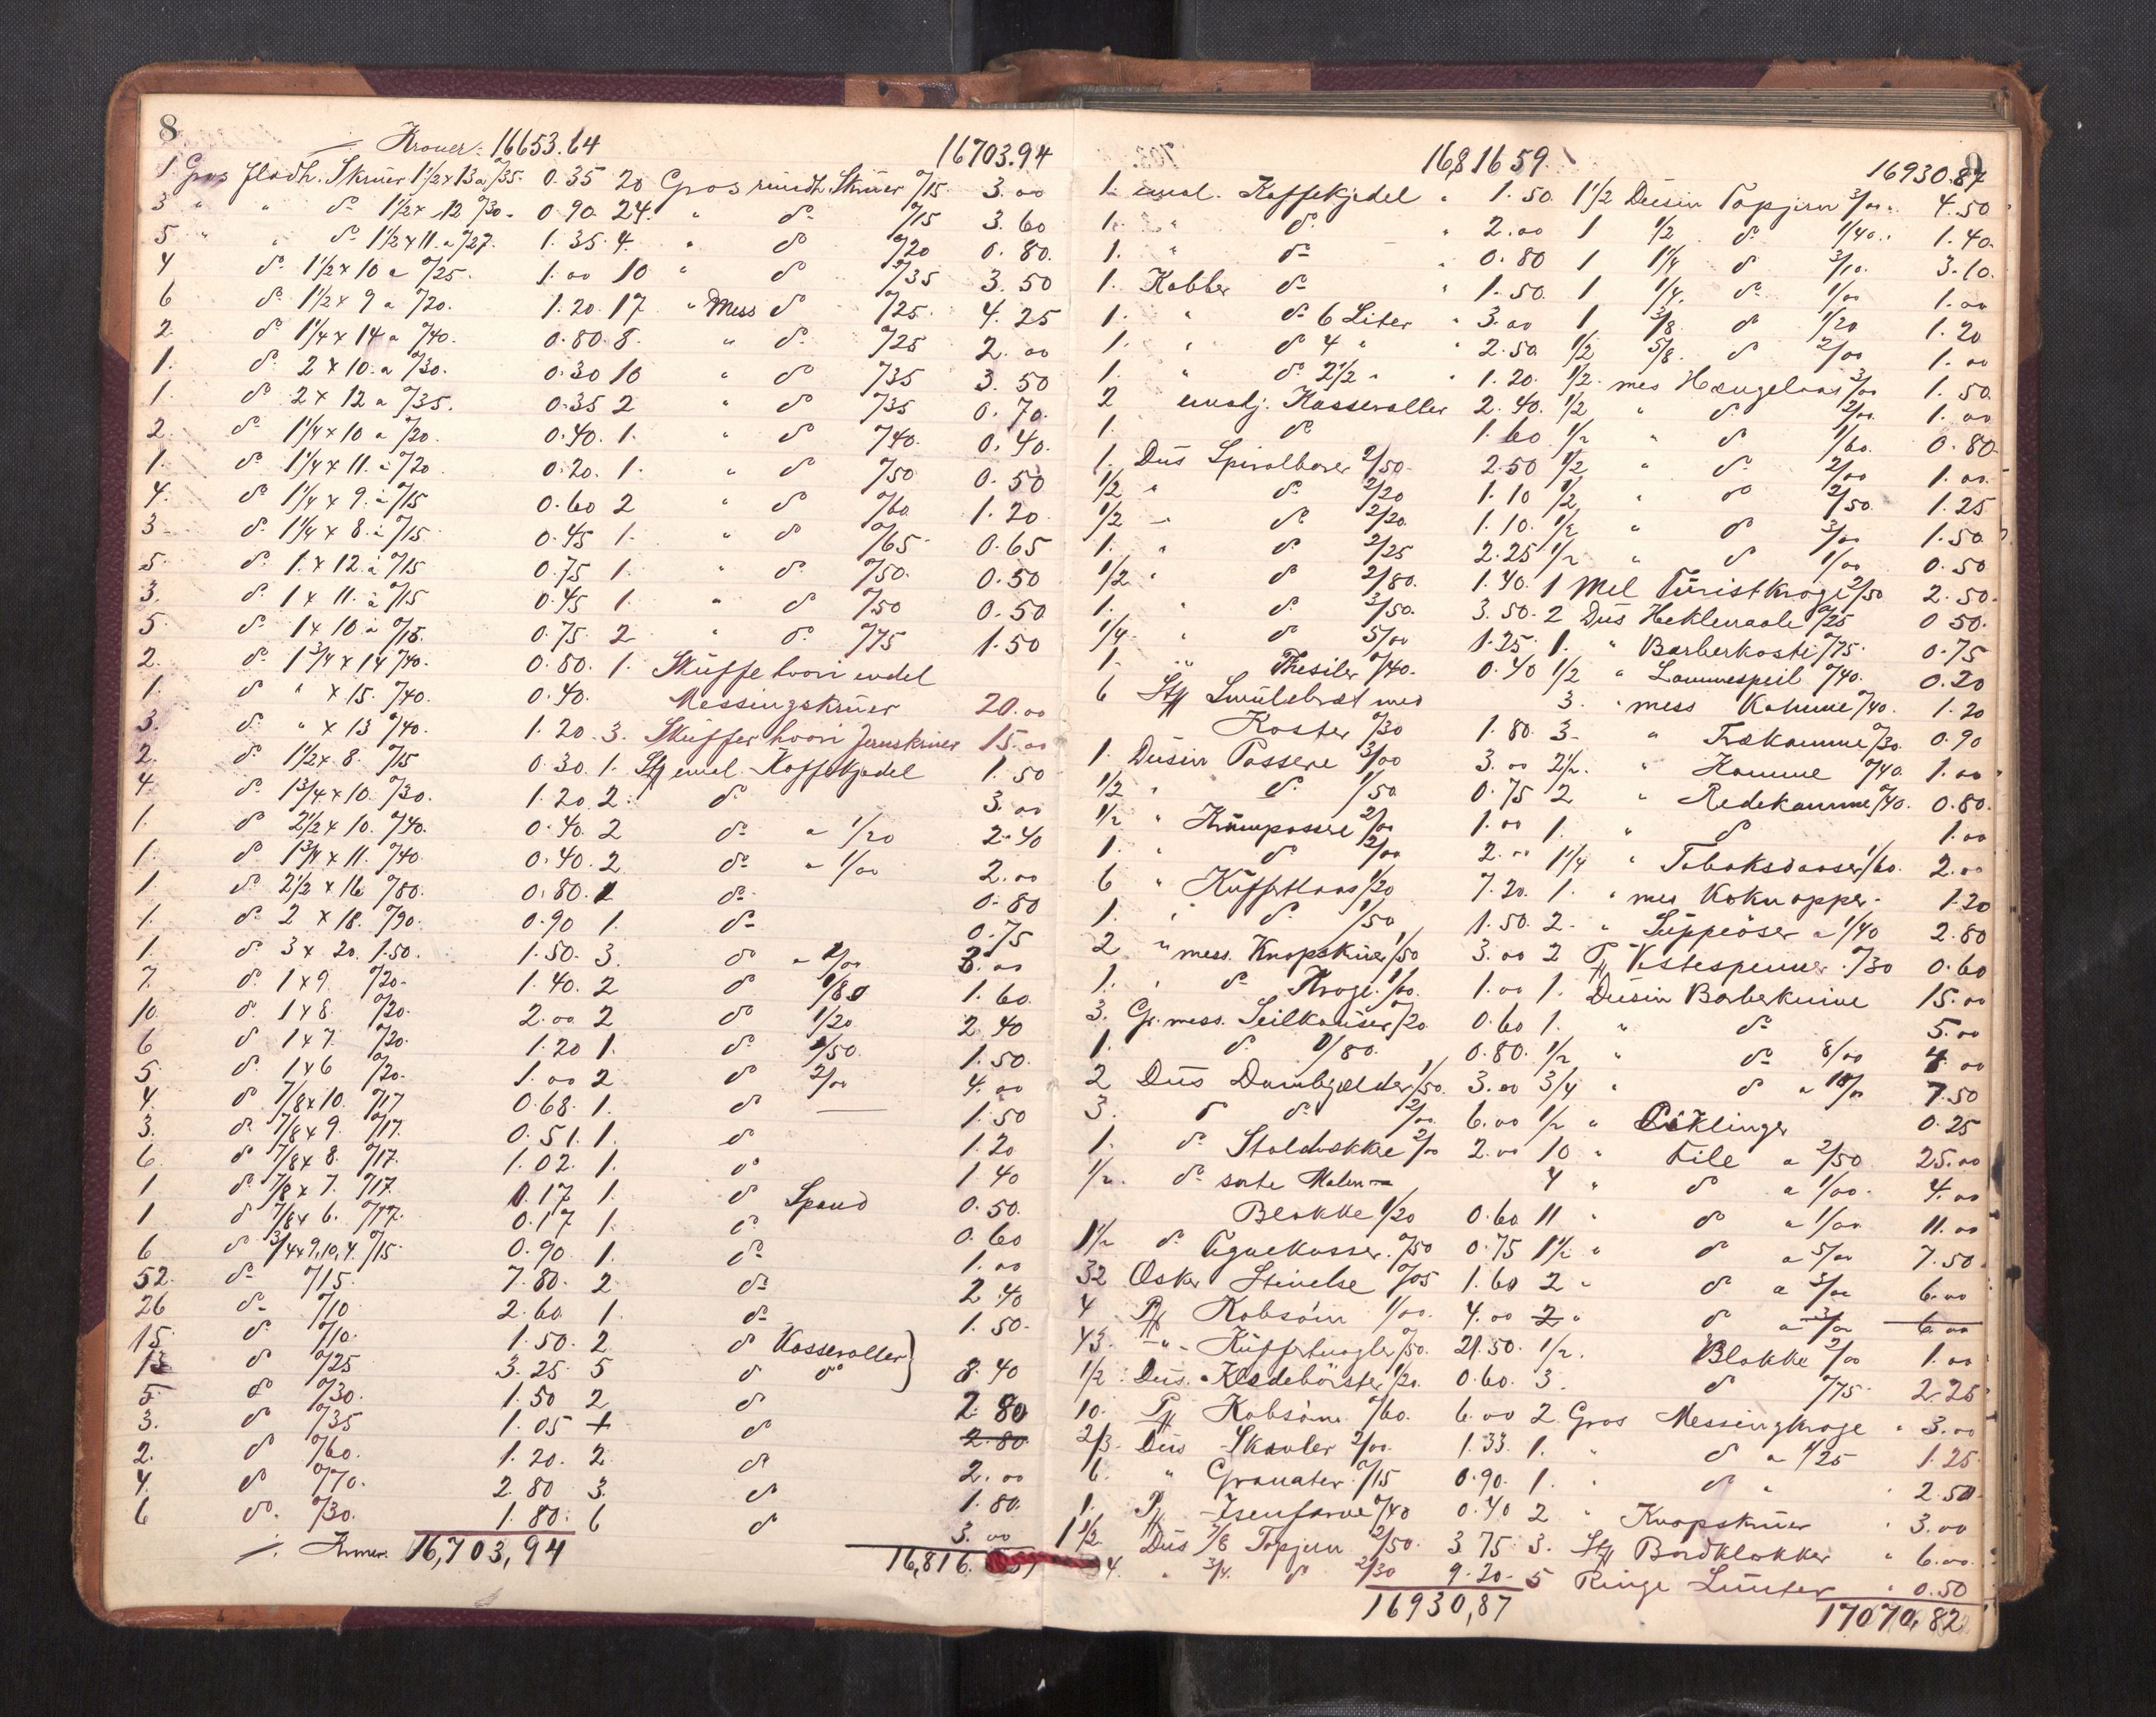 8
Kroner: 16653.64
1 Gros fladh. Skruer 1 1/2 x 13 a 0/35. 0.35
3 " " do 1 1/2 x 12 0/30. 0.90
5 " " do 1 1/2 x 11. a 0/27. 1.35
4 do 1 1/2 x 10 a 0/25. 1.00
6 do 1 1/2 x 9 a 0/20. 1.20
2. do 1 1/4 x 14 a 0/40. 0.80
1. do 2 x 10. a 0/30. 0.30
1. do 2 x 12 a 0/35. 0.35
2. do 1 1/4 x 10 a 0/20. 0.40
1. do 1 1/4 x 11. a 0/20 0.20
4. do 1 1/4 x 9. a 0/15 0.60
3 do 1 1/4 x 8. a 0/15 0.45
5. do 1. x 12. a 0/15 0.75
3. do 1 x 11. a 0/15 0.45
5. do 1 x 10 a 0/15. 0.75
2. do 1 3/4 x 14 0/40. 0.80
1. do " x 15. 0/40. 0.40
3. do " x 13 0/40. 1.20
2. do 1 1/2 x 8. 0/15 0.30
4. do 1 3/4 x 10. 0/30. 1.20
1. do 2 1/2 x 10. 0/40. 0.40
1. do 1 3/4 x 11. 0/40. 0.40
1. do 2 1/2 x 16 0/80. 0.80
1. do 2 x 18. 0/90. 0.90
1. do 3 x 20. 1.50. 1.50
7. do 1 x 9. 0/20. 1.40
10. do 1 x 8. 0/20. 2.00
6 do 1 x 7. 0/20. 1.20
5. do 1 x 6 0/20. 1.00
4. do 7/8 x 10. 0/17 0.68
3. do 7/8 x 9. 0/17. 0.51
6. do 7/8 x 8. 0/17. 1.02
1 do 7/8 x 7. 0/17. 0.17
1 do 7/8 x 6. 0/17. 0.17
6 do 3/4 x 9,10,4. 0/15. 0.90
52. do 0/15. 7.80
26 do 0/10 2.60
15. do 0/10. 1.50
13 do 0/25 3.25
5. do 0/30. 1.50
3. do 0/35 1.05
2. do 0/60. 1.20
4. do 0/70. 2.80
6 do 0/30. 1.80
Kroner 16,703,94
16703.94
20 Gros rundh. Skruer 0/15. 3.00
24. " do 0/15 3.60
4. " do 0/20 0.80
10 " do 0/35 3.50
17 " Mess do 0/25. 4.25
8. " do 0/25 2.00
10 " do 0/35 3.50
2 " do 0/35 0.70
1. " do 0/40. 0.40
1. " do 0/50 0.50
2 " do 0/60 1.20
1. " do 0/65 0.65
1. " do 0/50. 0.50
1. " do 0/50 0.50
2 " do 0/75 1.50
1. Skuffe hvori endel
Messingskruer 20.00
3. Skuffer hvori Jernskruer 15.00
1. Stk emal. Kaffekjedel 1.50
2. do 3.00
2 do a 1/20 2.40
2 do a 1/00 2.00
1 do 0.80
1. do 0.75
3. do a 1/00 3.00
2 do 0/80 1.60
2 do 1/20 2.40
1. do 1/50. 1.50
2 do 2/00 4.00
1. do 1.50
1. do 1.20
1. do 1.40
1. do Spand 0.50
1. do 0.60
1. do 1.00
2 do 2.40
1. do 1.50
2 do Kasseroller
5 do do 8.40
2 do 2.80
+ do 2.80
2. do 2.00
3. do 1.80
6 do 3.00
16,816.
9
16,816 59.
1. emal. Kaffekjedel " 1.50
1. " do " 2.00
1. " do " 0.80
1. Kobber do " 1.50
1. " do 6 Liter " 3.00
1. " do 4 " " 2.50
1. " do 2 1/2 " " 1.20
2 emalj. Kasseroller 2.40
1. do 1.60
1. Dus Spiralborer 2/50. 2.50
1/2 " do 2/20 1.10
1/2 " do 2/20 1.10
1. " do 2/25 2.25
1/2 " do 2/80. 1.40
1. " do 3/50. 3.50
1/4 " do 5/00 1.25
1. " Thesiler 0/40. 0.40
6 Stk Smulebræt med
Koster 0/30 1.80
1. Dusin Passere 3/00 3.00
1/2 " do 1/50 0.75
1/2 " Krumpassere 2/00 1.00
1. " do 2/00 2.00
6 " Kuffertlaas 1/20 7.20
1. " do 1/50 1.50
2 " mess. Knopskruer 1/50 3.00
1. " do Kroge 1/00. 1.00
3. Gr. mess. Seilkauser 0/20 0.60
1. do 0/80. 0.80
2 Dus Dombjælder 1/50. 3.00
3. do do 2/00 6.00
1. do Staldvækkere 2/00 2.00
1/2. do sorte Malen
Blokke 1/20 0.60
1 1/2 do Cigarkasser. 0/50 0.75
32 Æsker Stivelse 0/05 1.60
4 Pk Kobsöm 1/00. 4.00
43. " Kuffertnagler 0/50. 21.50
1/2 Dus. Klædebörster 1/20. 0.60
10. Pk Kobsöm 0/60. 6.00
2/3 Dus Skovler 2/00. 1.33
6. " Granater 0/15 0.90
1. Pk Isenfarve 0/40 0.40
1 1/2 Dus 7/8 Topjern 2/50. 3.75
4. " 3/4. do 2/30 9.20
16930,87
16930.87
1 1/2 Dusin Topjern 3/00. 4.50
1 1/2 do 1/40. 1.40
1 1 1/4 do 3/10. 3.10
1 1/4. do 1/00 1.00
1 3/8 do 1/20 1.20
1/2 5/8. do 2/00 1.00
1/2 mes Hængelaas 3/00 1.50
1/2 " do 2/00. 1.00
1/2 " do 1/60. 0.80
1/2 " do 2/00 1.00
1/2 " do 2/50. 1.25
1/2 " do 3/00 1.50
1/2 " do 1/00 0.50
1 Mel Turistkroge 2/50 2.50
2 Dus Heklenaale 0/25 0.50
1. " Barberkoste 0/75. 0.75
1/2 " Lommespeil 0/40. 0.20
3. " mess Kamme 0/40. 1.20
3. " Trækamme 0/30. 0.90
2 1/2. " Kamme 0/40. 1.00
2 " Redekamme 0/40. 0.80
1. " do 1.00
1 1/4 " Tobaksdaaser 1/60. 2.00
1. " mes Koknapper. 1.20
2. " Suppeöser a 1/40 2.80
2 Pk Vestespenner. 0/30 0.60
1. Dusin Barberknive 15.00
1. " do 5.00
1/2 " do 8/00 4.00
3/4 " do a 10/00 7.50
1/2 " Öiklinger 0.25
10 " File a 2/50 25.00
4 " do a 1/00. 4.00
11 " do a 1/00. 11.00
1 1/2 " do a 5/00 7.50
2 " do a 3/00 6.00
2 " do a 3/00 6.00
1/2. Blokke 2/00 1.00
3. do 0/75. 2.25
2 Gros Messingkroge " 3.00
1. " do a 1/25 1.25
1. " do " 2.50
2 " Knopskruer " 3.00
3. Stk Bordklokker " 6.00
5 Ringe Lunter " 0.50
17070,82